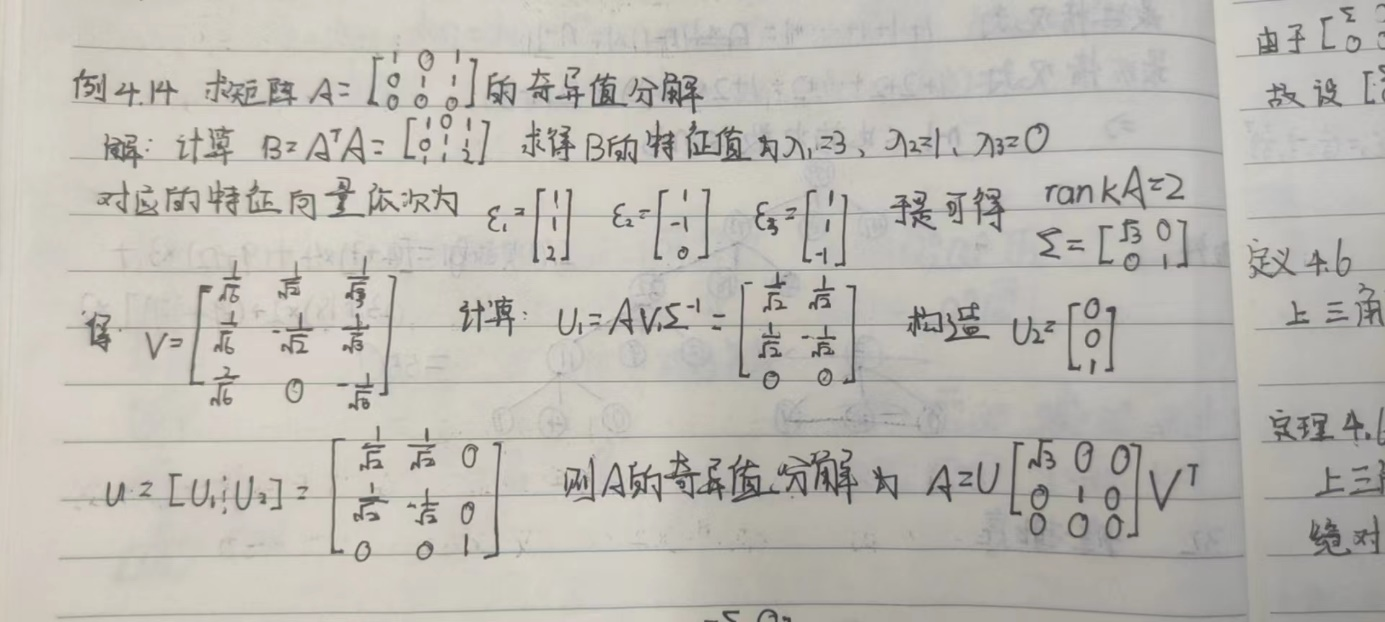 例4.14 求矩阵 A = [1 0 1; 0 1 1; 0 0 0] 的奇异值分解
解: 计算 B = AᵀA = [1 0 1; 0 1 1; 1 1 2] 求得B的特征值为λ₁=3、λ₂=1、λ₃=0
对应的特征向量依次为 ξ₁ = [1; 1; 2] ξ₂ = [1; -1; 0] ξ₃ = [1; 1; -1] 于是可得 rankA=2
Σ = [√3 0; 0 1]
得 V = [1/√6 1/√2 1/√3; 1/√6 -1/√2 1/√3; 2/√6 0 -1/√3] 计算: U₁ = AV₁Σ⁻¹ = [1/√2 1/√2; 1/√2 -1/√2; 0 0] 构造 U₂ = [0; 0; 1]
U = [U₁⋮U₂] = [1/√2 1/√2 0; 1/√2 -1/√2 0; 0 0 1] 则A的奇异值分解为 A = U [√3 0 0; 0 1 0; 0 0 0] Vᵀ
由于 [Σ
0 0
故设 [
定义4.6
上三角
定理4.6
上三
绝对